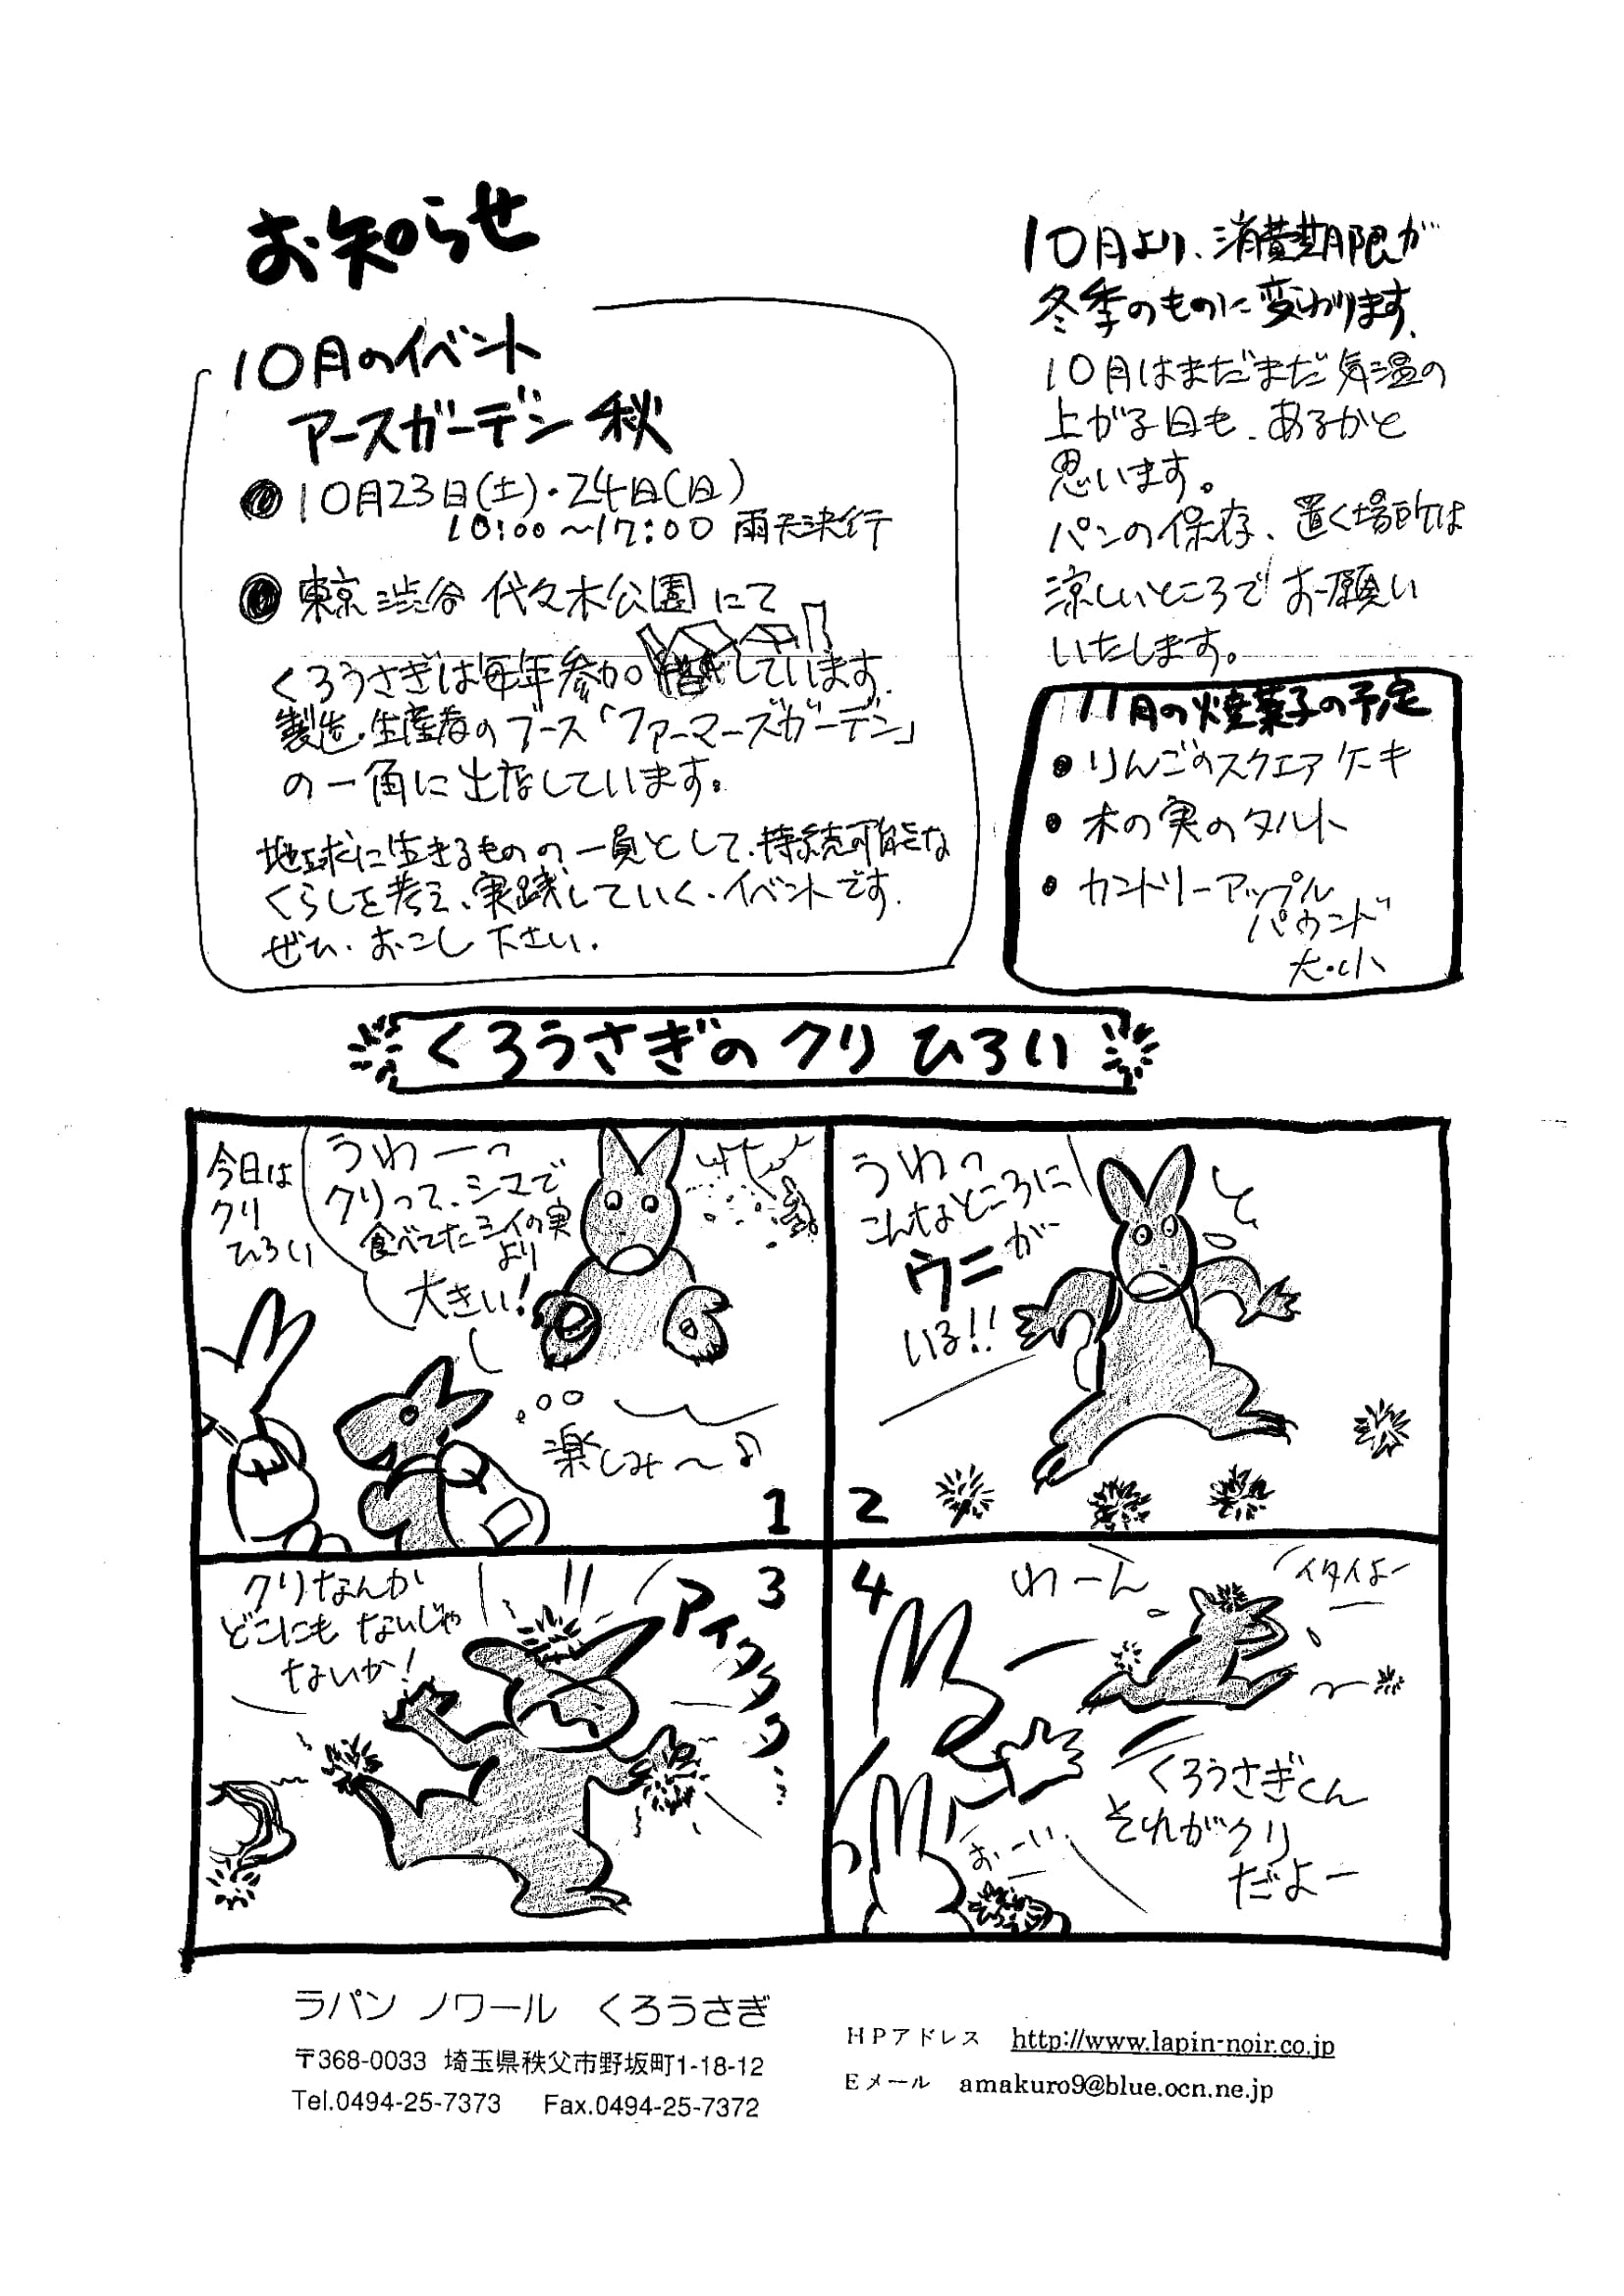 お知らせ
10月のイベント
アースガーデン 秋
●10月23日(土)・24日(日)
10:00〜17:00 雨天決行
●東京 渋谷 代々木公園 にて
くろうさぎは毎年参加しています.
製造・生産者のブース「ファーマーズガーデン」
の一角に出店しています。
地球に生きるものの一員として、持続可能な
くらしを考え、実践していく、イベントです.
ぜひ、おこし下さい.
10月より、消費期限が
冬季のものに変わります.
10月はまだまだ気温の
上がる日も、あるかと
思います。
パンの保存、置く場所は
涼しいところでお願い
いたします。
11月の焼菓子の予定
●りんごのスクエアケーキ
●木の実のタルト
●カントリーアップル
パウンド
大・小
くろうさぎのクリひろい
今日は
クリ
ひろい
うわーっ
クリって、シマで
食べてたシイの実
より
大きい!
楽しみ〜♪
1
うわっ
こんなところに
ウニが
いる!!
2
クリなんか
どこにもないじゃ
ないか!
アイタタタタ
3
4
わーん
イタイよー
くろうさぎくん
それがクリ
だよー
おーい
ラパン ノワール くろうさぎ
〒368-0033 埼玉県秩父市野坂町1-18-12
Tel.0494-25-7373 Fax.0494-25-7372
HPアドレス http://www.lapin-noir.co.jp
Eメール amakuro9@blue.ocn.ne.jp